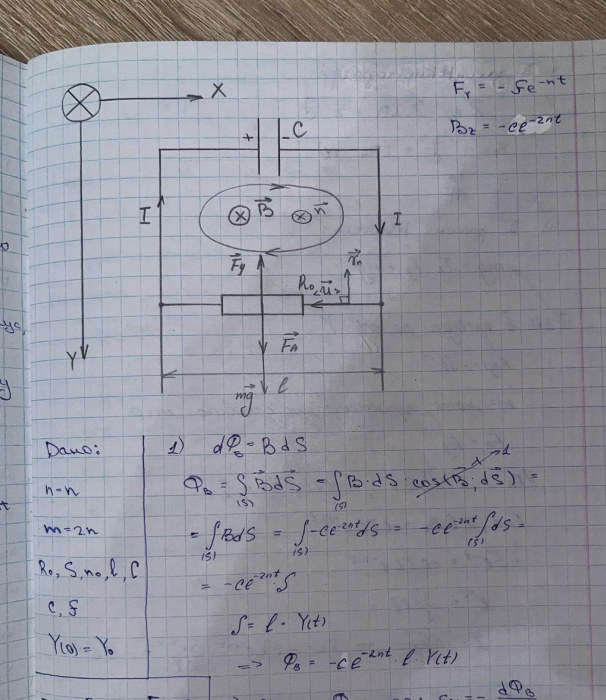 X
F_Y = -fe^{-nt}
B_z = -ce^{-2nt}
+ - C
I B⃗ n⃗ I
F⃗_y R₀ <u⃗> r⃗n
Y F⃗_A
mg⃗ l
Дано:
n-n
m=2n
R₀, S, n₀, l, C
c, f
Y(0) = Y₀
1) dФ_B = B dS
Ф_B = ∫_(S) B⃗dS⃗ = ∫_(S) B·dS·cos(B⃗, dS⃗) → 1 =
= ∫_(S) BdS = ∫_(S) -ce^{-2nt}dS = -ce^{-2nt}∫_(S) dS =
= -ce^{-2nt}·S
S = l · Y(t)
=> Ф_B = -ce^{-2nt}·l·Y(t)
dФ_B